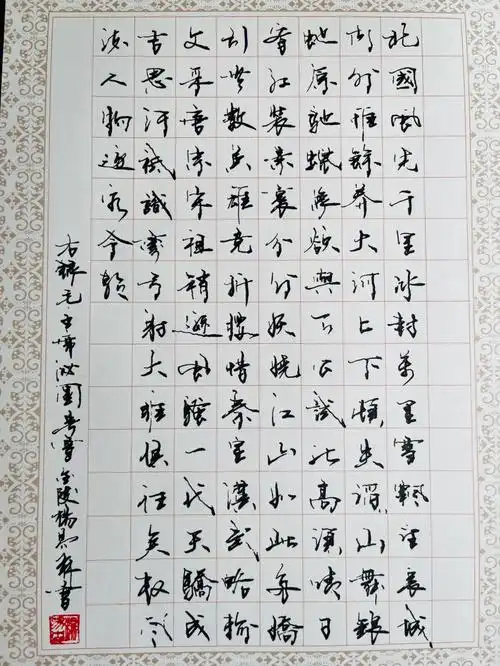 北國風光千里冰封萬里雪飄望長城
内外惟餘莽大河上下頓失滔山舞銀
蛇原馳蠟象欲與天公試比高須晴日
看紅裝素裹分外妖嬈江山如此多嬌
引無數英雄競折腰惜秦皇漢武略輸
文采唐宗宋祖稍遜風騷一代天驕成
吉思汗祇識彎弓射大雕俱往矣数风
流人物還看今朝
右錄毛主席沁園春雪金陵楊書